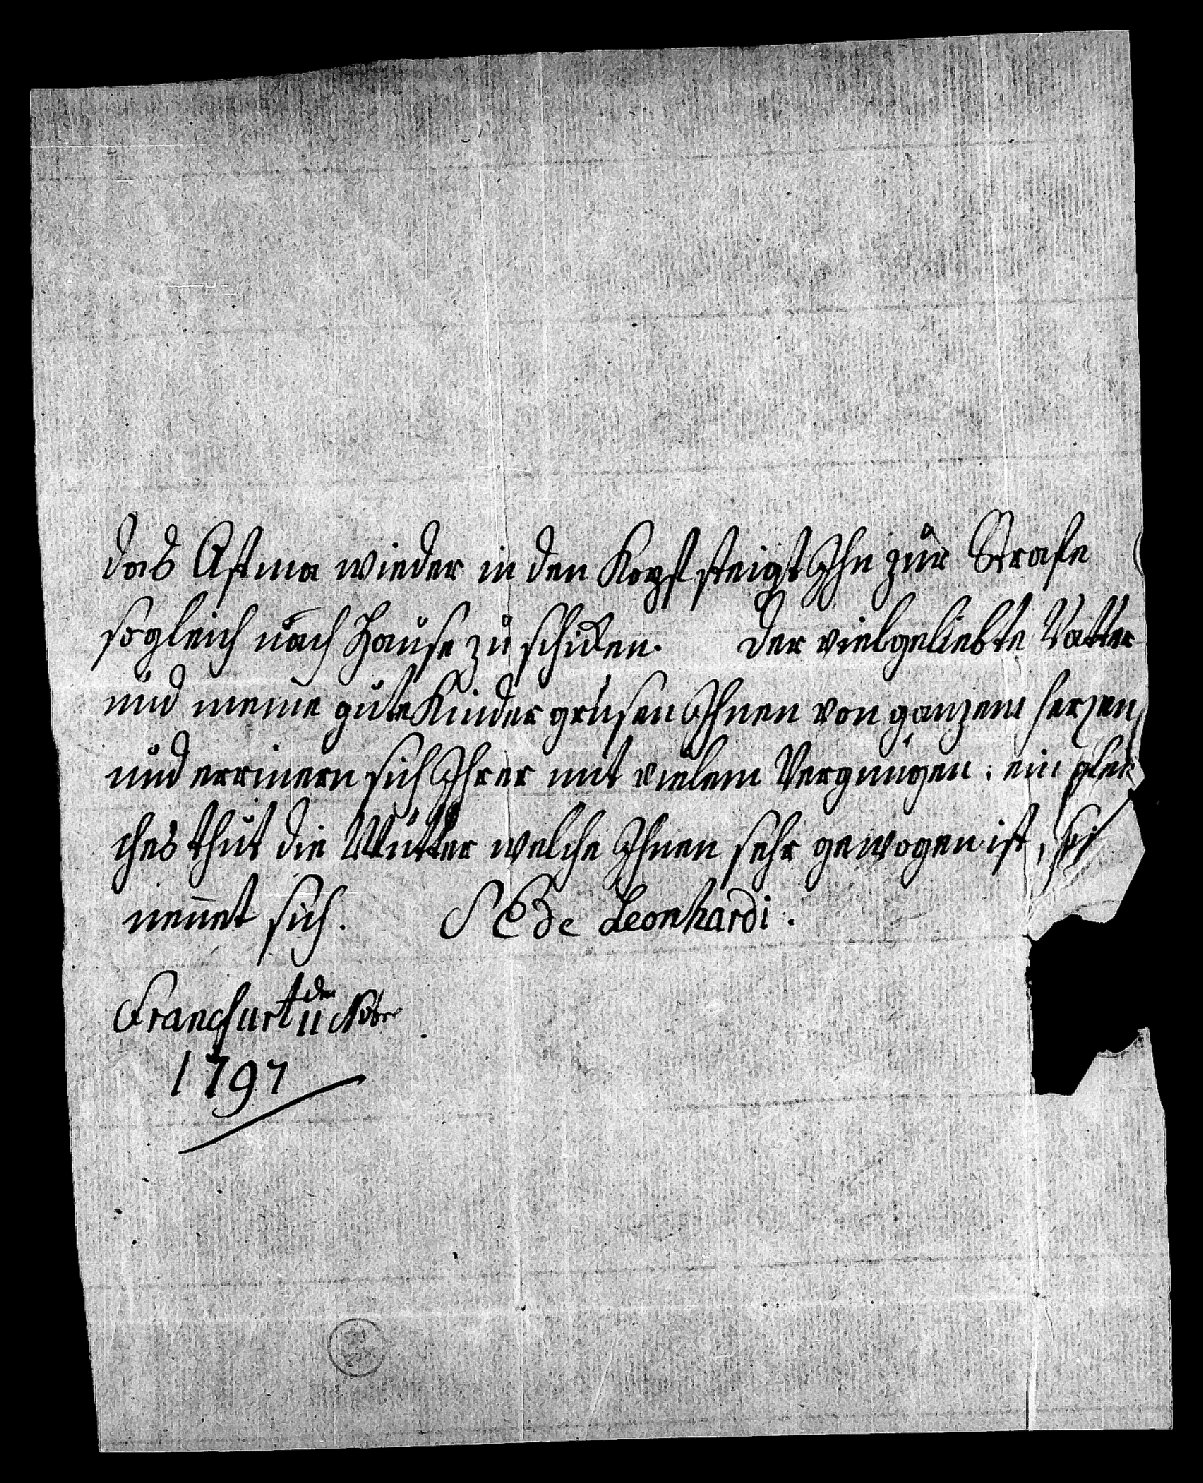 das Astma wieder in den Kopf steigt Ihn zur Strafe
sogleich nach Hause zu schicken. der vielgeliebte Vatter
und meine gute Kinder grüsen Ihnen von ganzem herzen,
und errinern sich Ihrer mit vielem Vergnügen; ein glei
ches thut die Mutter welche Ihnen sehr gewogen ist,
nennet sich. S E de Leonhardi.
Francfurt den 11 Nobre
1797